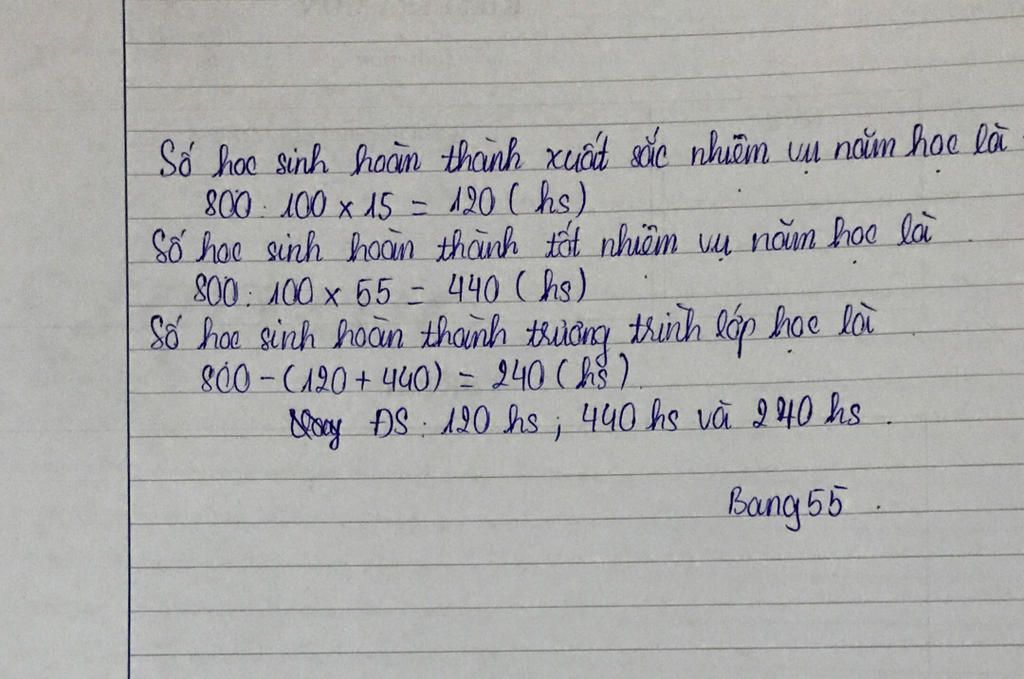 Số học sinh hoàn thành xuất sắc nhiệm vụ năm học là
800 : 100 x 15 = 120 ( hs )
Số học sinh hoàn thành tốt nhiệm vụ năm học là
800 : 100 x 55 = 440 ( hs )
Số học sinh hoàn thành trương trình lớp học là
800 - ( 120 + 440 ) = 240 ( hs )
ĐS : 120 hs ; 440 hs và 240 hs .
Bang55 .